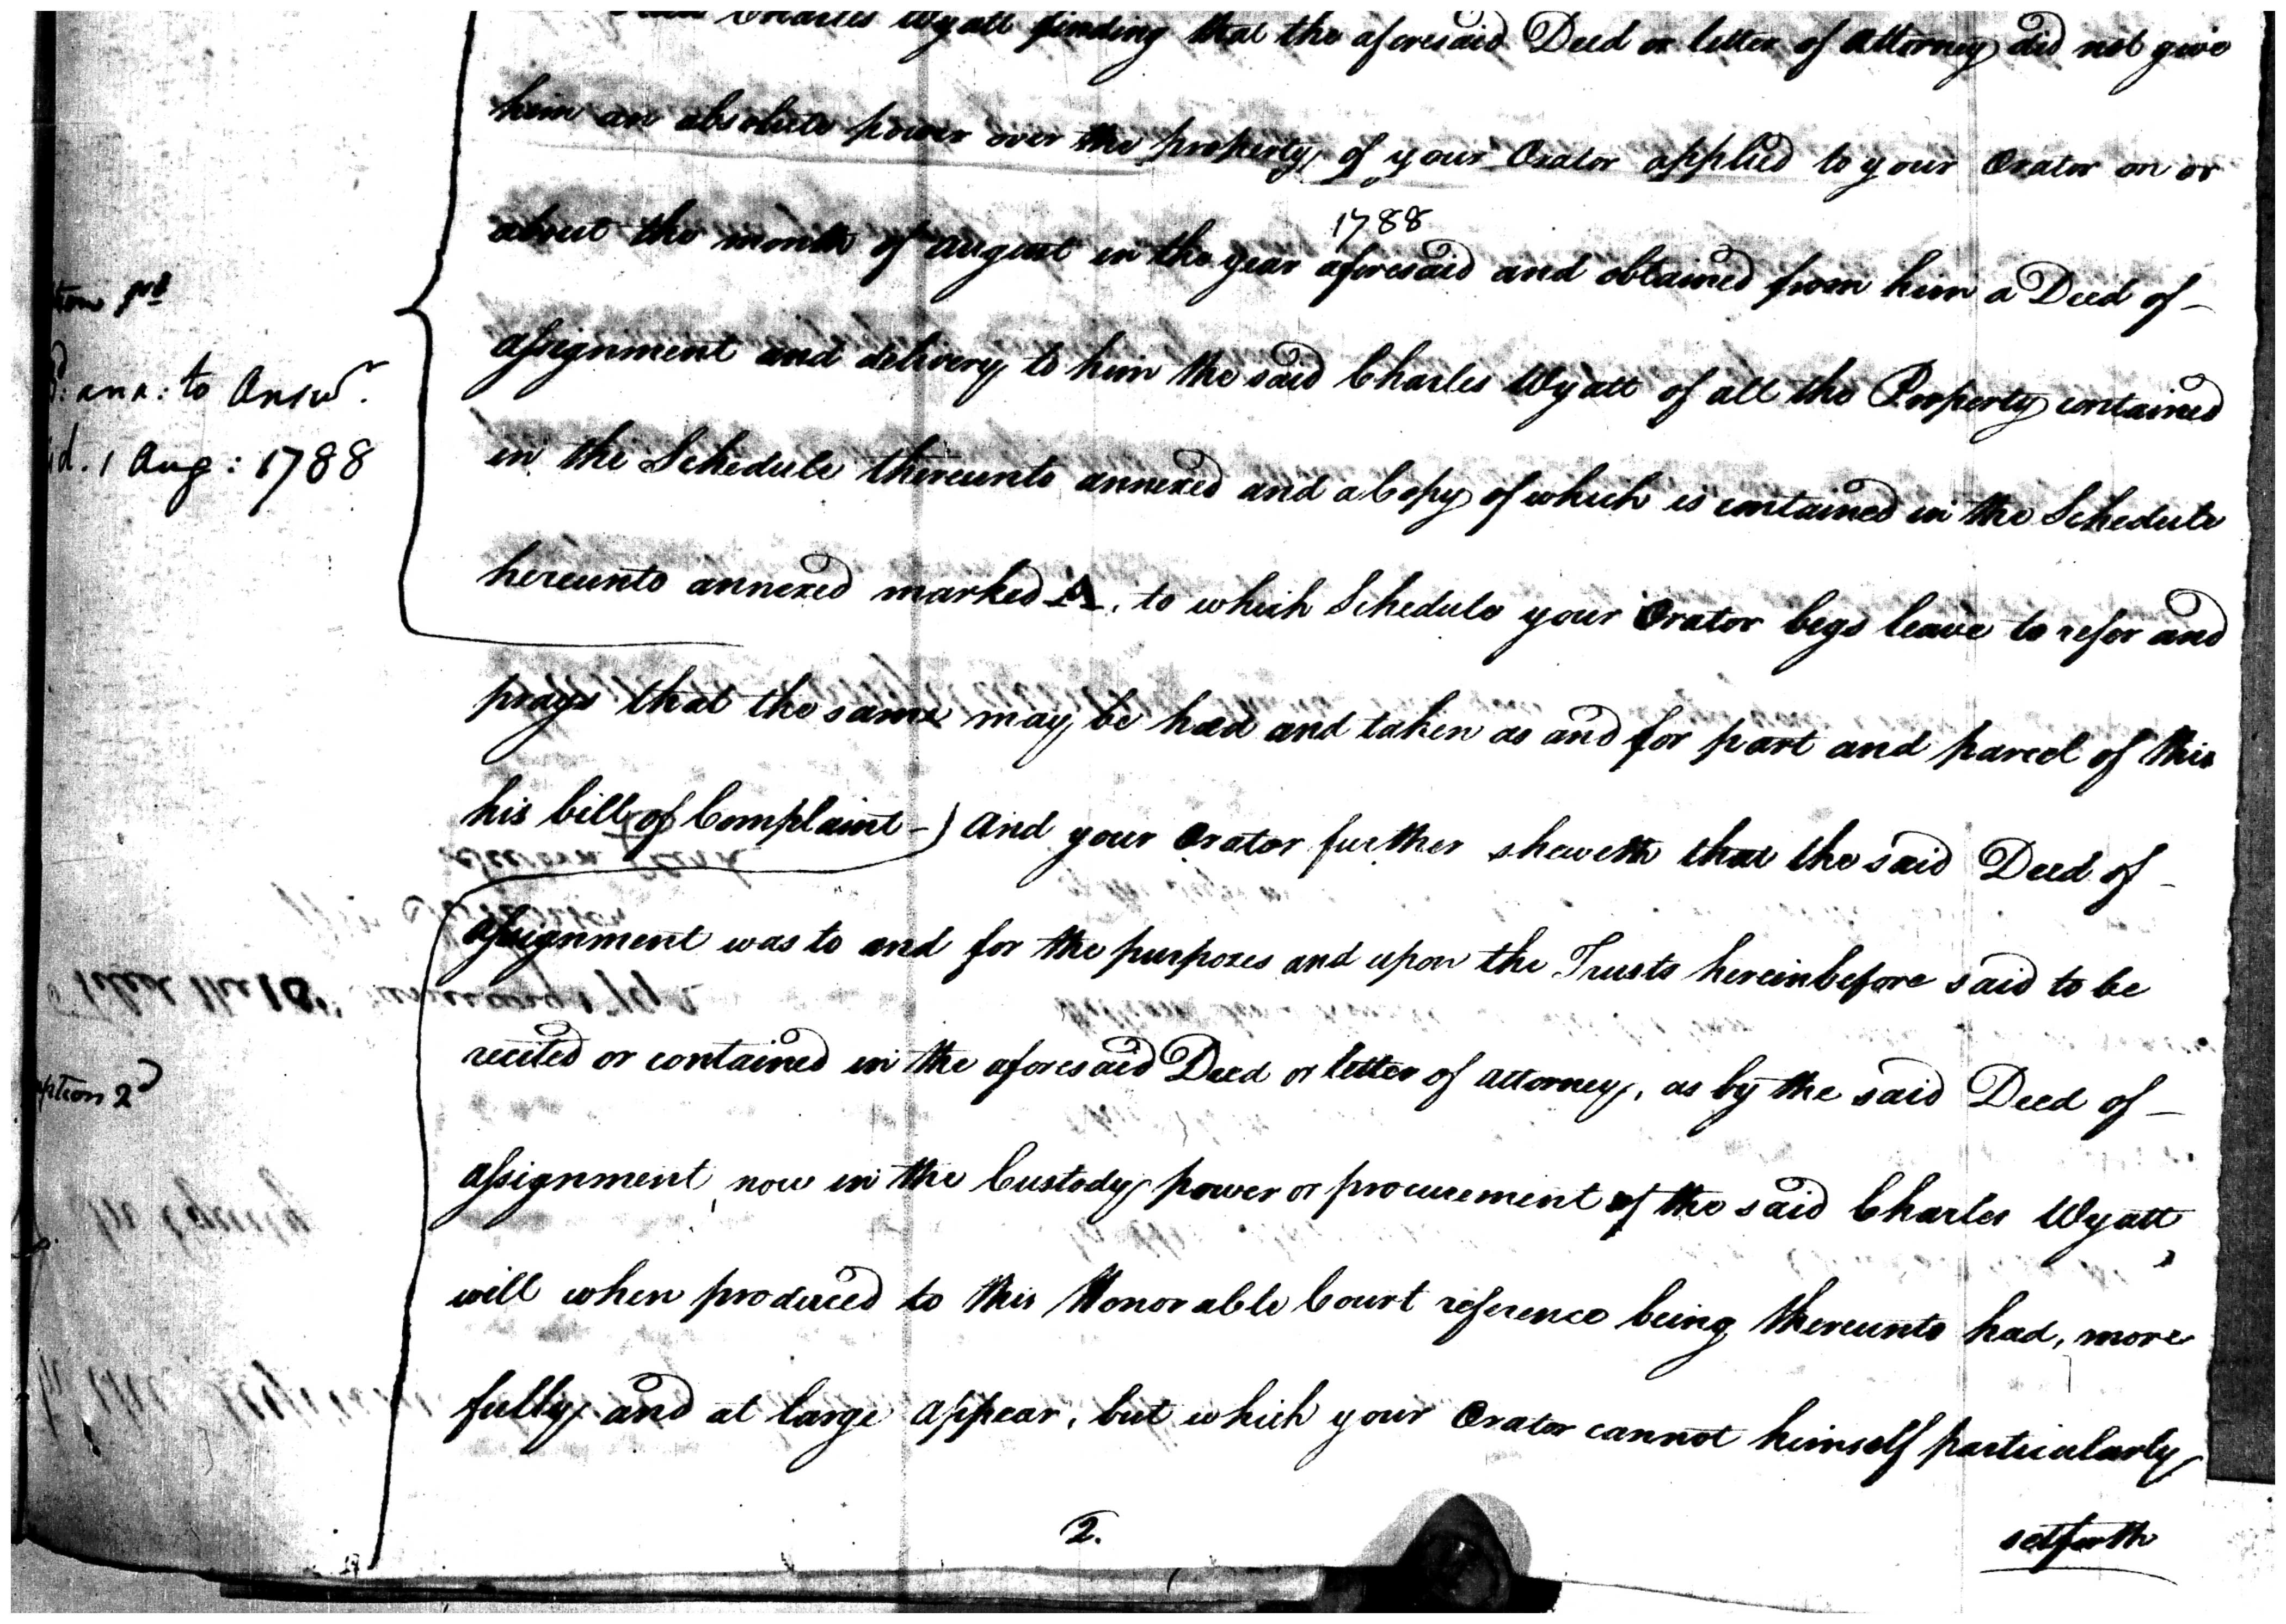 Charles Wyatt finding that the aforesaid Deed or letter of attorney did not give
him an absolute power over the property of your Orator applied to your Orator on or
1788
about the month of august in the year aforesaid and obtained from him a Deed of –
assignment and delivery to him the said Charles Wyatt of all the Property contained
in the Schedule thereunto annexed and a Copy of which is contained in the Schedule
hereunto annexed marked A, to which Schedule your Orator begs leave to refer and
prays that the same may be had and taken as and for part and parcel of this
his bill of Complaint –) And your Orator further sheweth that the said Deed of –
assignment was to and for the purposes and upon the Trusts hereinbefore said to be
recited or contained in the aforesaid Deed or letter of attorney, as by the said Deed of –
assignment now in the Custody power or procurement of the said Charles Wyatt,
will when produced to this Honorable Court reference being thereunto had, more
fully and at large appear, but which your Orator cannot himself particularly
2.
setforth
ann: to Answr.
1 Aug: 1788
ption 2d